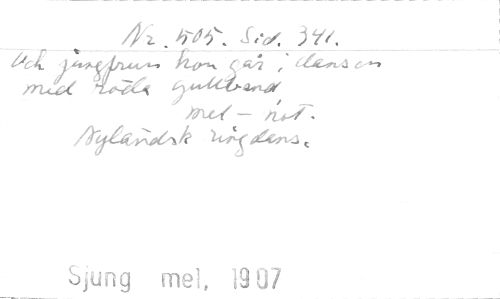 Nr. 505. Sid. 341.
Och jungfrun hon går i dansen
med röda gullband,
mel – not.
Nyländsk ringdans.
Sjung mel, 1907